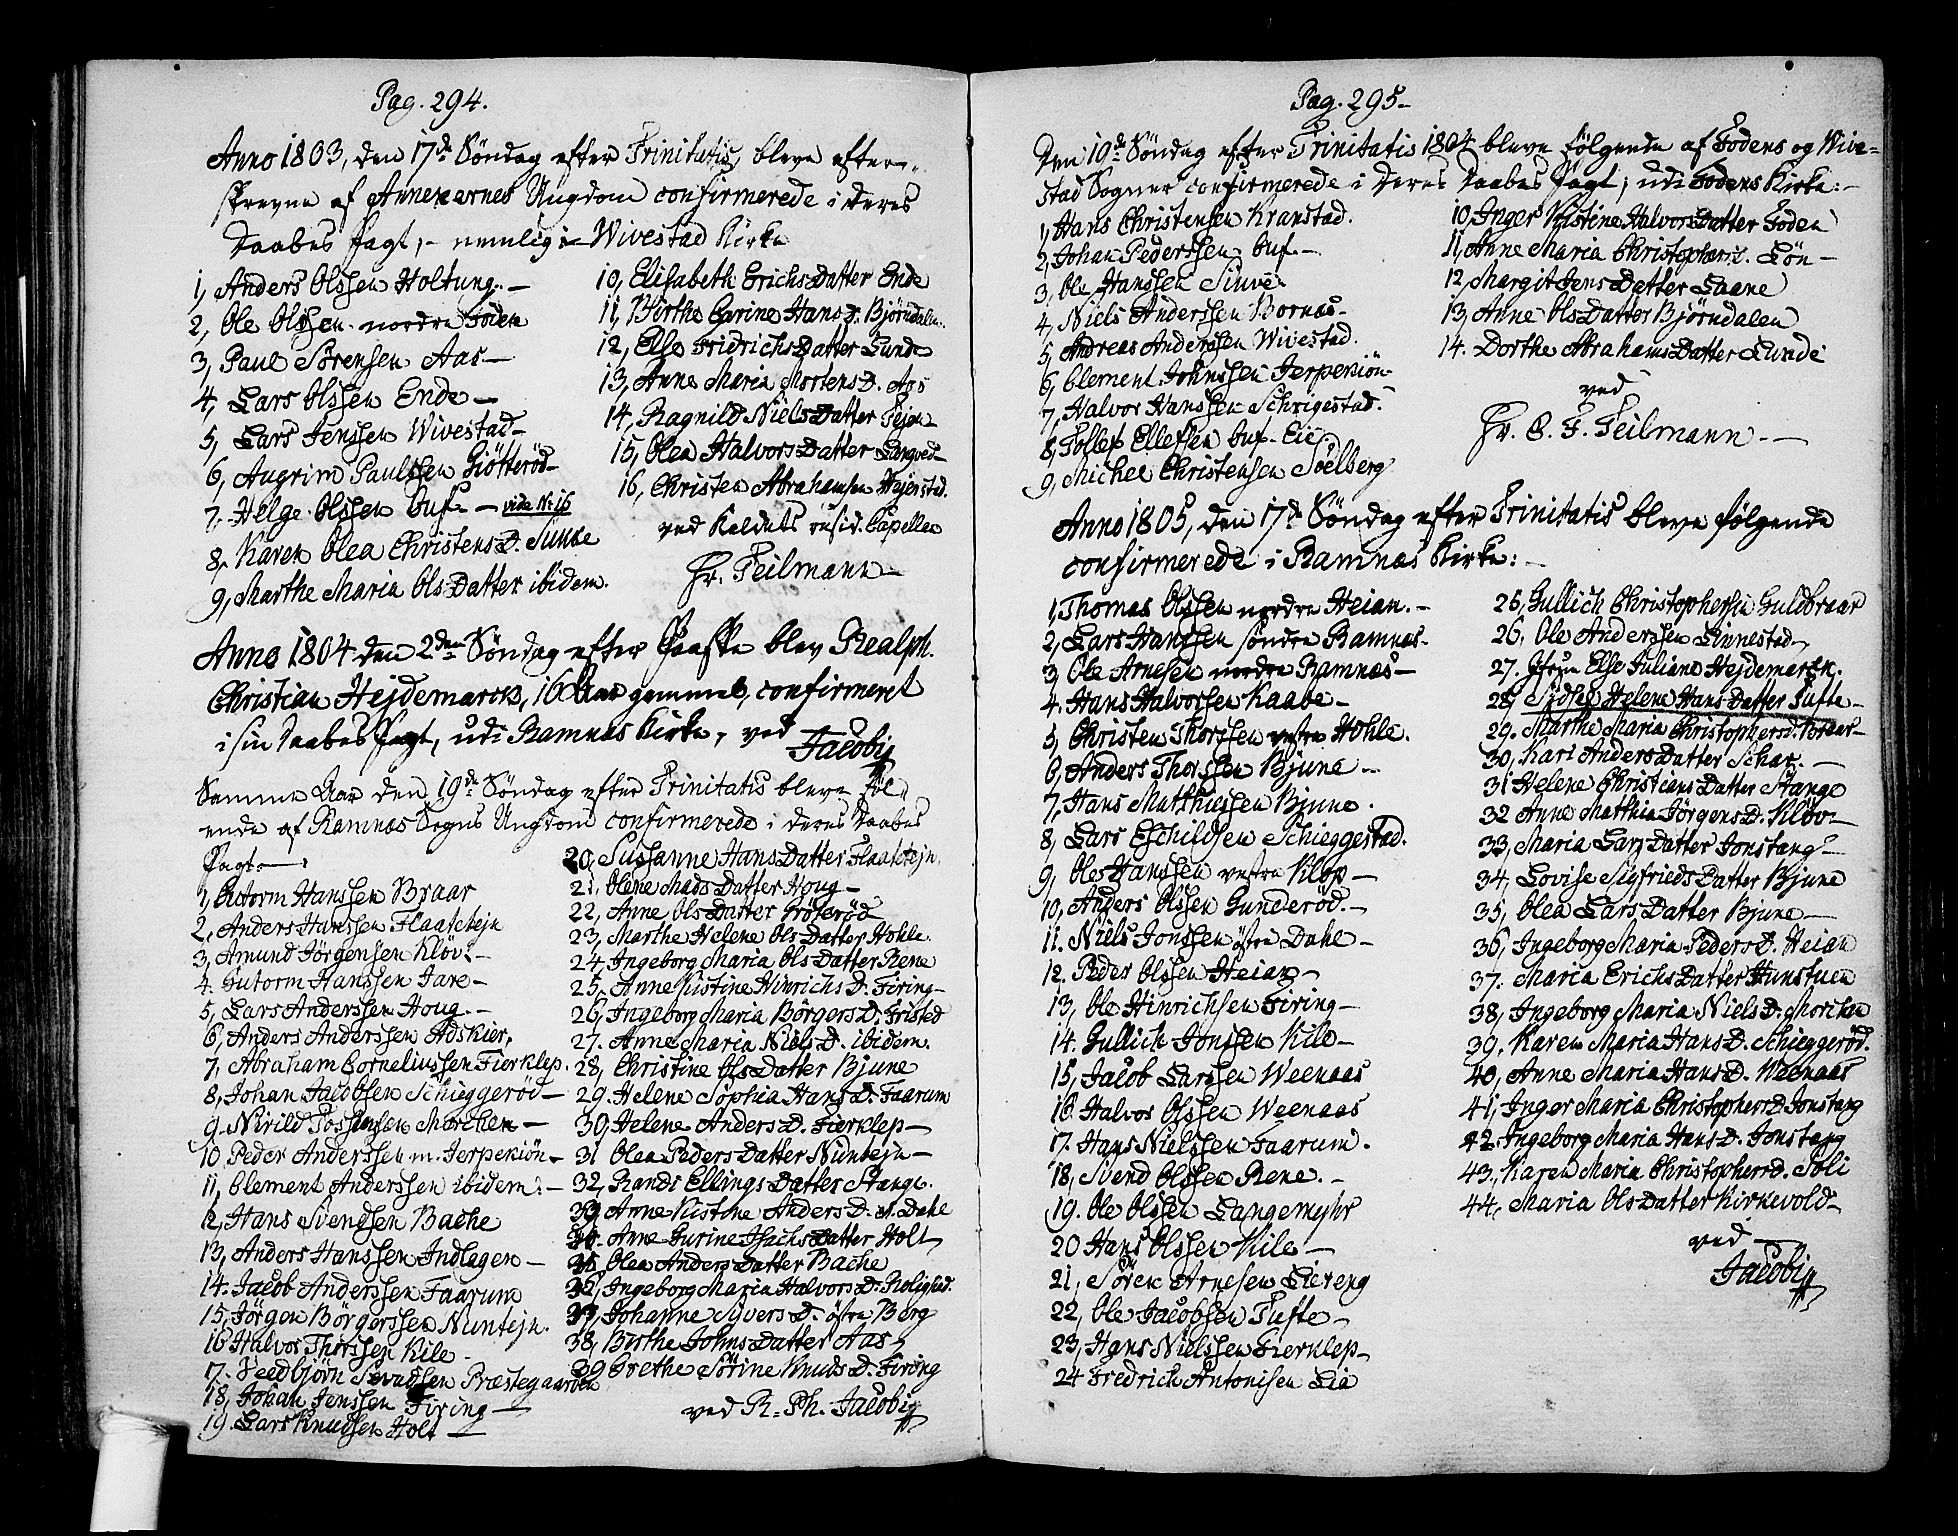 Pag. 294.
Anno 1803, den 17de Söndag efter Trinitatis, bleve efter-
skrevne af Annexernes Ungdom confirmerede i deres
Daabes Pagt, - nemlig i Wivestad Kirke
1, Anders Olssen Holtung. -
2, Ole Olssen nordre Foden
3, Paul Sörensen Aas -
4, Lars Olssen Ende -
5, Lars Jenssen Wivestad -
6, Augrim Paulssen Giötteröd -
7. Helge Olssen Buf - vide No 16
8, Karen Olea Christens D. Sunve
9, Marthe Maria Ols Datter ibidem.
10, Elisabeth Erichs Datter Ende
11, Birthe Corine Hans D. Björndalen.
12, Else Fridrichs Datter Lunde
13, Anne Maria Mortens D. Aas
14, Ragnild Niels Datter Tejen
15, Olea Halvors Datter Langved -
16, Christen Abrahamsen Hejerstad.
ved Kaldets resid. Capellan
Hr. Teilmann -
Anno 1804 den 2den Söndag efter Paaske blev Realph.
Christian Hejdemarck, 16 Aar gammel, confirmeret
i sin Daabes Pagt, udi Ramnæs Kirke, ved
Jacobi
Samme Aar den 19de Söndag efter Trinitatis bleve föl-
ende af Ramnæs Sogns Ungdom confirmerede i deres Daabes
Pagt -
1, Gutorm Hanssen Braar
2, Anders Hanssen Flaatetejn
3, Amund Jörgensen Klöv. -
4. Gutorm Hanssen Jare -
5, Lars Anderssen Houg. -
6, Anders Anderssen Adskier,
7, Abraham Corneliussen Fierklep.
8, Johan Jacobsen Schieggeröd -
9. Nirild Morchen -
10 Peder Anderssen m. Jerpekiön -
11, Clement Anderssen ibidem. -
12, Hans Svendsen Bache
13, Anders Hanssen Indlagen -
14. Jacob Anderssen Faarum
15, Jörgen Börgerssen Nuntejn.
16 Halvor Thorssen Kile -
17. Veedbjörn Præstegaarden
18, Johan Jenssen Firing -
19. Lars Knudsen Holt -
20, Susanne Hans Datter Flaatetejn.
21. Olene Mads Datter Houg -
22, Anne Ols Datter Gröteröd
23, Marthe Helene Ols Datter Hohle.
24, Ingeborg Maria Ols Datter Rene
25. Anne Kistine Hinrichs D. Firing -
26, Ingeborg Maria Börgers D. Fristed
27. Anne Maria Niels D. ibidem.
28, Christine Ols Datter Bjune
29. Helene Sophia Hans D. Faarum
30, Helene Anders D. Fierklep -
31 Olea Peders Datter Nuntejn -
32, Randi Ellings Datter Stange.
33, Anne Kistine Anders D. Dahle
34. Anne Gurine Isachs Datter Holt
35 Olea Anders Datter Bache
36, Ingeborg Maria Halvors D. Rolighed.
37, Johanne Syvers D. östre Berg
38, Birthe Johns Datter Aas
39 Grethe Sörine Knuds D. Firing
ved R. Ph. Jacobi
Pag. 295 -
Den 19de Söndag efter Trinitatis 1804 bleve fölgende af Fodens og Wive-
stad Sogner confirmerede i deres Daabes Pagt, udi Fodens Kirke: -
1, Hans Christensen Kranstad.
2, Johan Pederssen Buf. -
3, Ole Hanssen Sinve.
4, Niels Anderssen Bornæs -
5, Andreas Anderssen Wivestad.
6, Clement Johnssen Jerpekiön -
7, Halvor Hanssen Schrigestad.
8, Tollef Ellefsen Buf - Eie.
9, Michel Christensen Söelberg
10, Inger Kistine Halvors Datter Foden
11, Anne Maria Christophers D. Lön -
12, Margit Jens Datter Laane
13, Anne Ols Datter Björndalen
14. Dorthe Abrahams Datter Lunde
ved
Hr. C. F. Teilmann. -
Anno 1805, den 17de Söndag efter Trinitatis bleve fölgende
confirmerede i Ramnæs Kirke: -
1, Thomas Olssen nordre Heian. -
2, Lars Hanssen söndre Ramnæs -
3, Ole Arnesen nordre Ramnæs -
4. Hans Halvorssen Kaabe -
5, Christen Thorssen vestre Hohle.
6, Anders Thorssen Bjune -
7, Hans Matthiessen Bjune.
8, Lars Eschildsen Schieggestad.
9, Ole Hanssen vestre Klöp -
10, Anders Olssen Gunderöd. -
11. Niels Jonssen östre Dahle -
12. Peder Olssen Heian -
13, Ole Hinrichsen Firing -
14. Gullich Jonssen Kile -
15, Jacob Larssen Weenaas
16. Halvor Olssen Weenaas
17. Hans Nielssen Faarum.
18, Svend Olssen Rene. -
19. Ole Olssen Langemyhr
20 Hans Olssen Kile -
21, Sören Arnesen Liereng
22, Ole Jacobsen Tufte -
23, Hans Nielssen Fierklep -
24 Fredrich Antonisen Lia
25, Gullich Christophersen Guldbraar
26, Ole Anderssen Linnestad
27. Jfru Else Juliane Hejdemarck.
28, Sidsel Helene Hans Datter Tufte -
29. Marthe Maria Christophers D. Foraar -
30, Kari Anders Datter Schar. -
31 Helene Christians Datter Stange
32 Anne Mathia Jörgens D. Klöv -
33, Maria Lars Datter Jonstang -
34, Lovise Sigfrieds Datter Bjune
35, Olea Lars Datter Bjune -
36, Ingeborg Maria Peders D. Heian
37. Maria Erichs Datter Hunstuen
38, Ingeborg Maria Niels D. Morchen
39, Karen Maria Hans D. Schieggeröd.
40, Anne Maria Hans D. Weenaas
41, Inger Maria Christophers D. Jonstang
42. Ingeborg Maria Hans D. Jonstang
43, Karen Maria Christophers D. Soli
44, Maria Ols Datter Kirkevold -
ved -
Jacobi